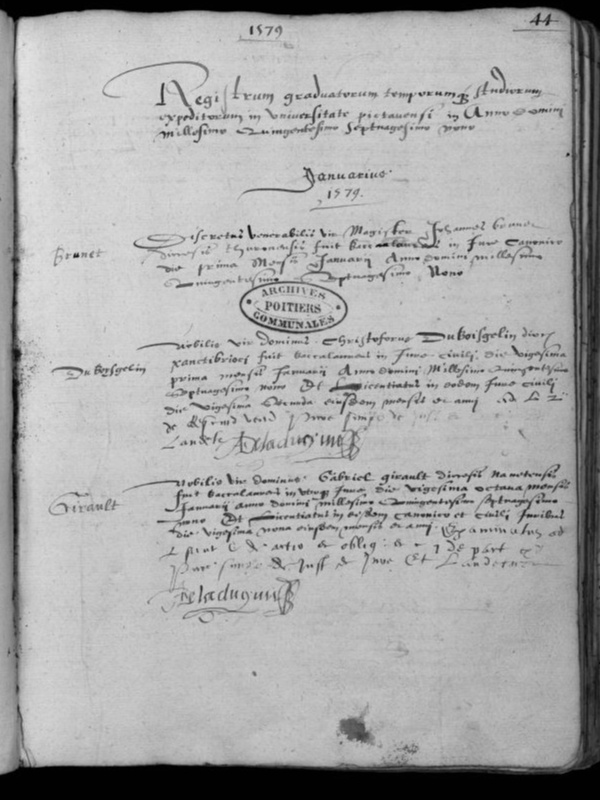 1579
44
Registrum graduatorum temporumq; studiorum
expeditorum in universitate pictavensi in Anno Domini
millesimo Quingentesimo Septuagesimo nono
Januarius.
1579.
Brunet
Discretus venerabilis vir Magister Johannes brunet
diocesis thuronensis fuit baccalaureus in Jure Canonico
die prima Mensis Januarii Anno domini millesimo
Quingentesimo Septuagesimo Nono
ARCHIVES
POITIERS
COMMUNALES
Duboisgelin
Nobilis vir dominus Christoforus Duboisgelin dioc
sanctibrioci fuit baccalaureus in Jure Civili die vigesima
prima mensis Januarii Anno domini Millesimo Quingentesimo
Septuagesimo nono Et Licentiatus in eodem Jure Civili
die vigesima Secunda eiusdem mensis et anni ad L
Deladuguie
Girault
Nobilis vir dominus Gabriel girault diocesis Nanetensis
fuit baccalaureus in utroq; Jure die vigesima octava mensis
Januarii anno domini millesimo Quingentesimo septuagesimo
nono Et Licentiatus in eisdem Canonico et Civili Juribus
die vigesima nona eiusdem mensis et anni Examinatus ad
L et oblig
de Just et Jure Et
Deladuguie